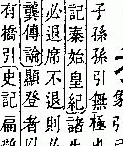 子孫孫引無極
記秦始皇紀諸生
必退席不退則
龔傳論顯登者
有橋引史記扁